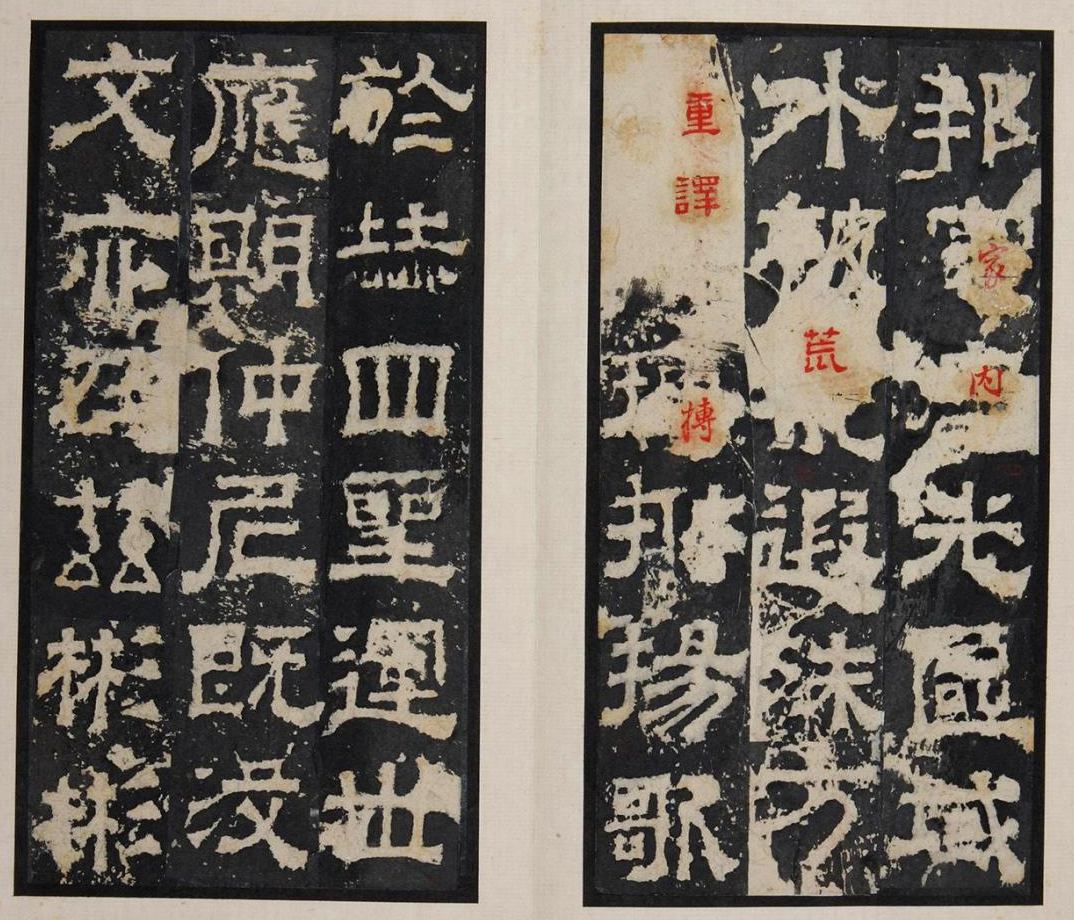 邦家內光區域
外被荒遐殊方
重譯搏拊揚歌
於赫四聖運世
應期仲尼既沒
文亦在茲彬彬